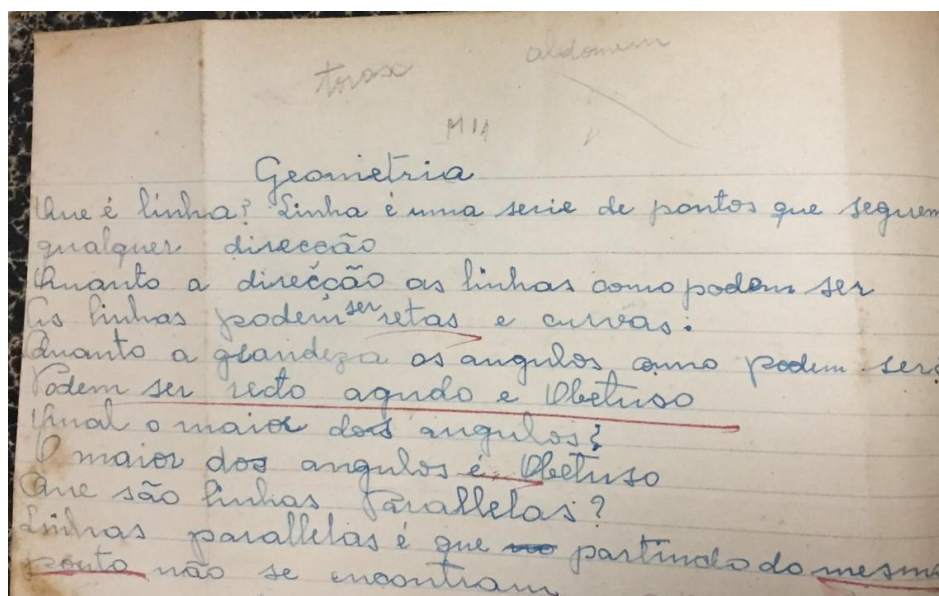 torax
abdomem
M14
Geometria
Que é linha? Linha é uma serie de pontos que seguem
qualquer direcção
Quanto a direcção as linhas como podem ser
As linhas podem ser retas e curvas.
Quanto a glandeza os angulos como podem ser?
Podem ser recto agudo e Obetuso
Qual o maior dos angulos?
O maior dos angulos é Obetuso
Que são linhas Parallelas?
Linhas parallelas é que partindo do mesmo
ponto não se encontram